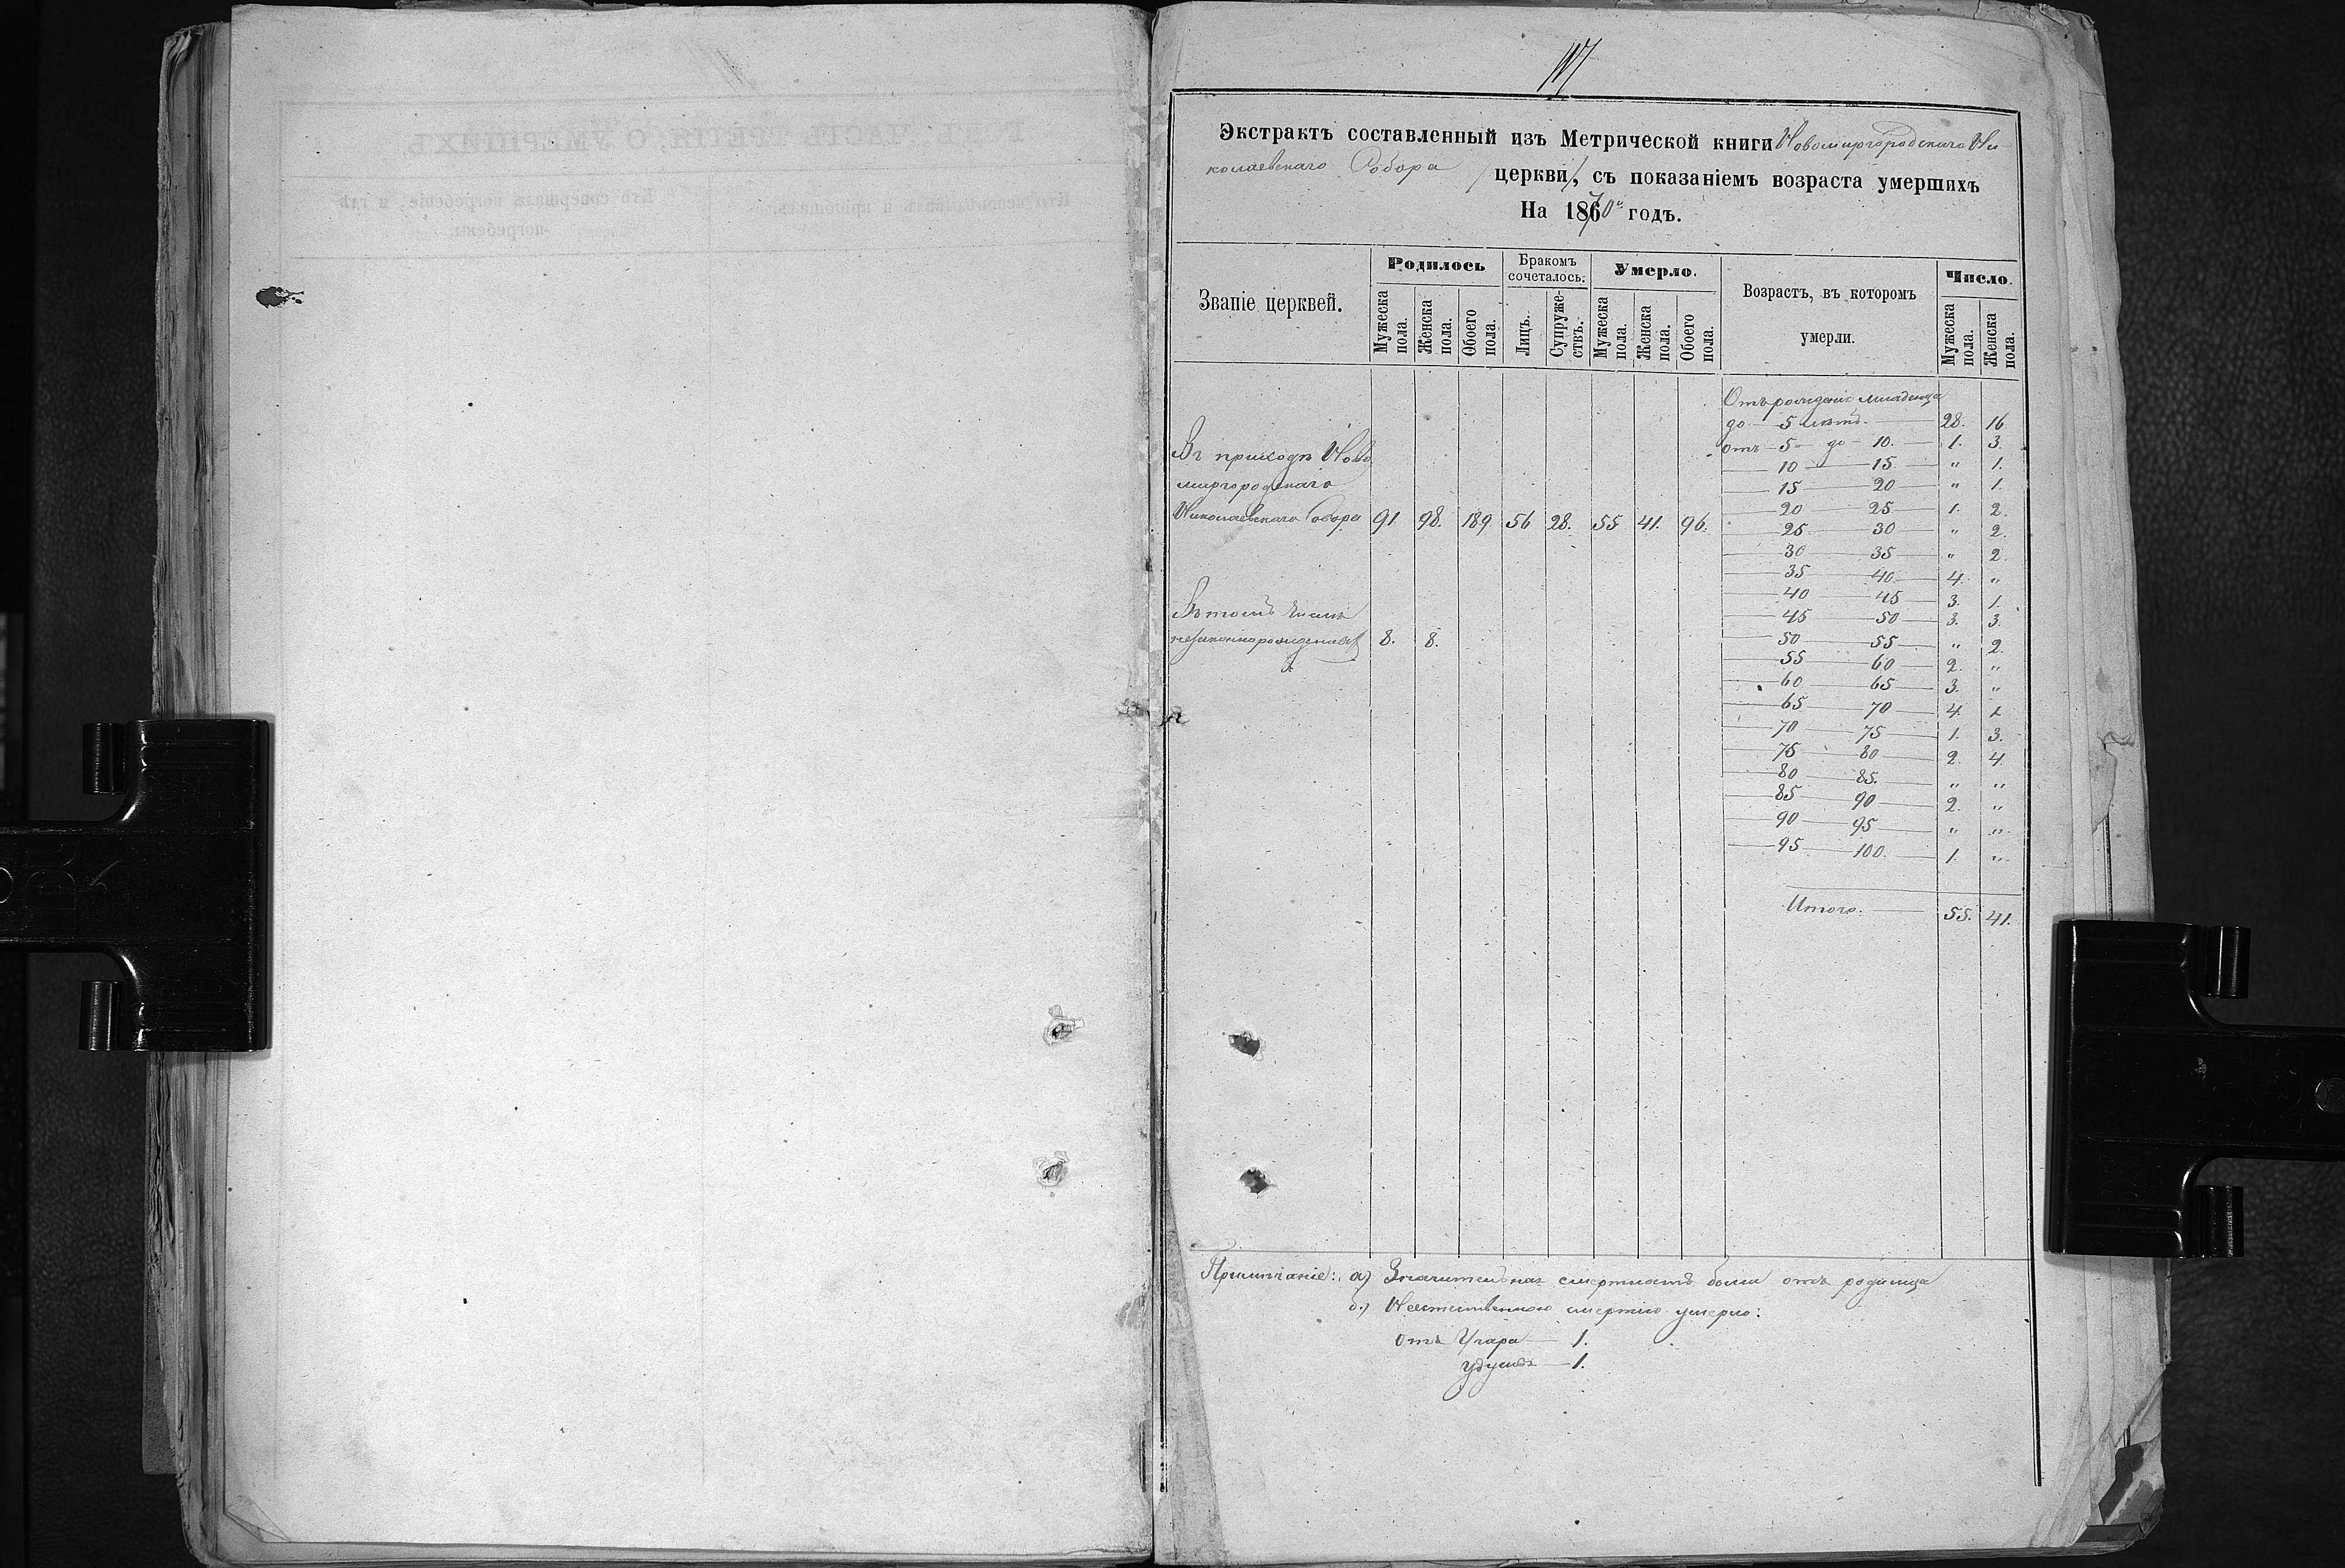 Экстрактъ составленный изъ Метрической книги Новомиргородскаго Ни
колаевскаго Собора /церкви/, съ показаніемъ возраста умершихъ
На 1870й годъ.
Званіе церквей.
Родилось
Бракомъ сочеталось.
Умерло.
Возрастъ, въ которомъ умерли.
Число.
Мужеска пола.
Женска пола.
Обоего пола.
Лицъ.
Супруже-ствъ.
Мужеска пола.
Женска пола.
Обоего пола.
Мужеска пола.
Женска пола.
Въ приходѣ Ново
миргородскаго
Николаевскаго Собора 91 98. 189 56 28. 55 41. 96.
Въ томъ числѣ
незаконнорожденныхъ 8. 8.
Отъ рожденія младенца
до 5 лѣтъ. 28. 16
отъ 5 до 10. 1. 3.
10 15. " 1.
15 20 " 1.
20 25 1. 2.
25 30 " 2.
30 35 " 2.
35 40 4. "
40 45 3. 1.
45 50 3. 3.
50 55 " 2.
55 60 2. "
60 65 3. "
65 70 4. 1.
70 75 1. 3.
75 80 2. 4.
80 85. " "
85 90 2. "
90 95 " "
95 100. 1. "
Итого. 55. 41.
Примѣчаніе: а) Значительная смертность была отъ родимца
б.) Неестественною смертію умерло:
отъ Угара — 1.
— 1.